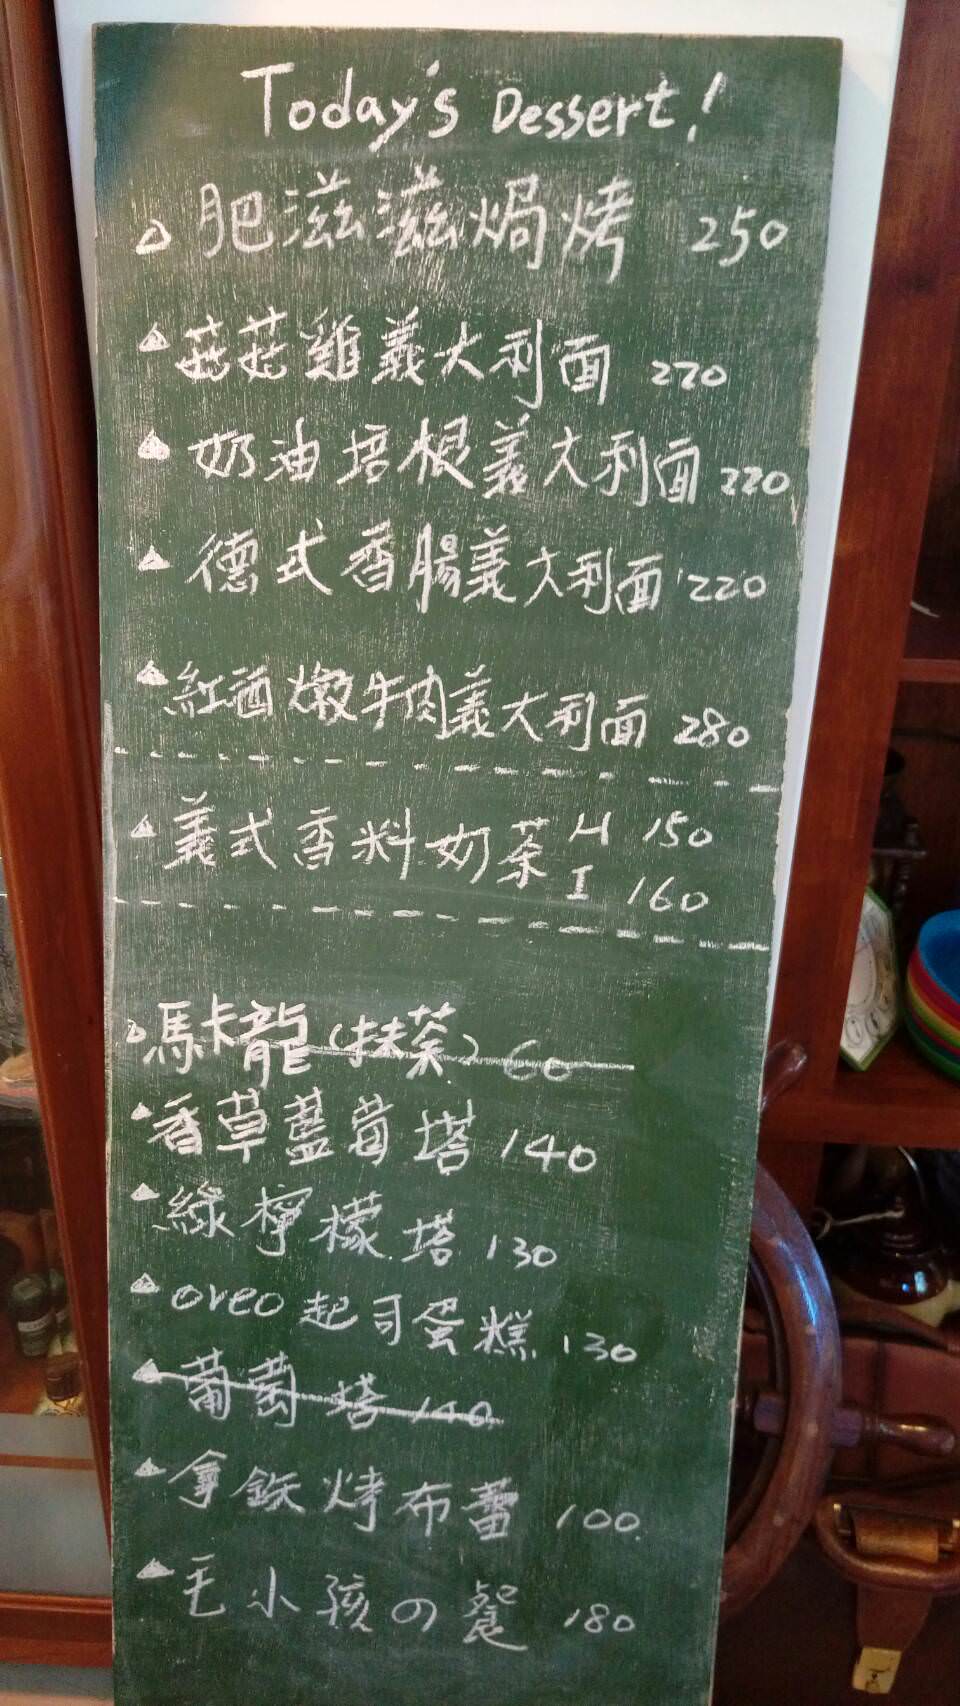 Today's Dessert!
肥滋滋焗烤 250
菇菇雞義大利面 220
奶油培根義大利面 220
德式香腸義大利面 220
紅酒燉牛肉義大利面 280
義式香料奶茶 H 150
I 160
馬卡龍(抹茶) 60
香草藍莓塔 140
綠檸檬塔 130
oreo起司蛋糕 130
葡萄塔 140
拿鉄烤布蕾 100
毛小孩の餐 180